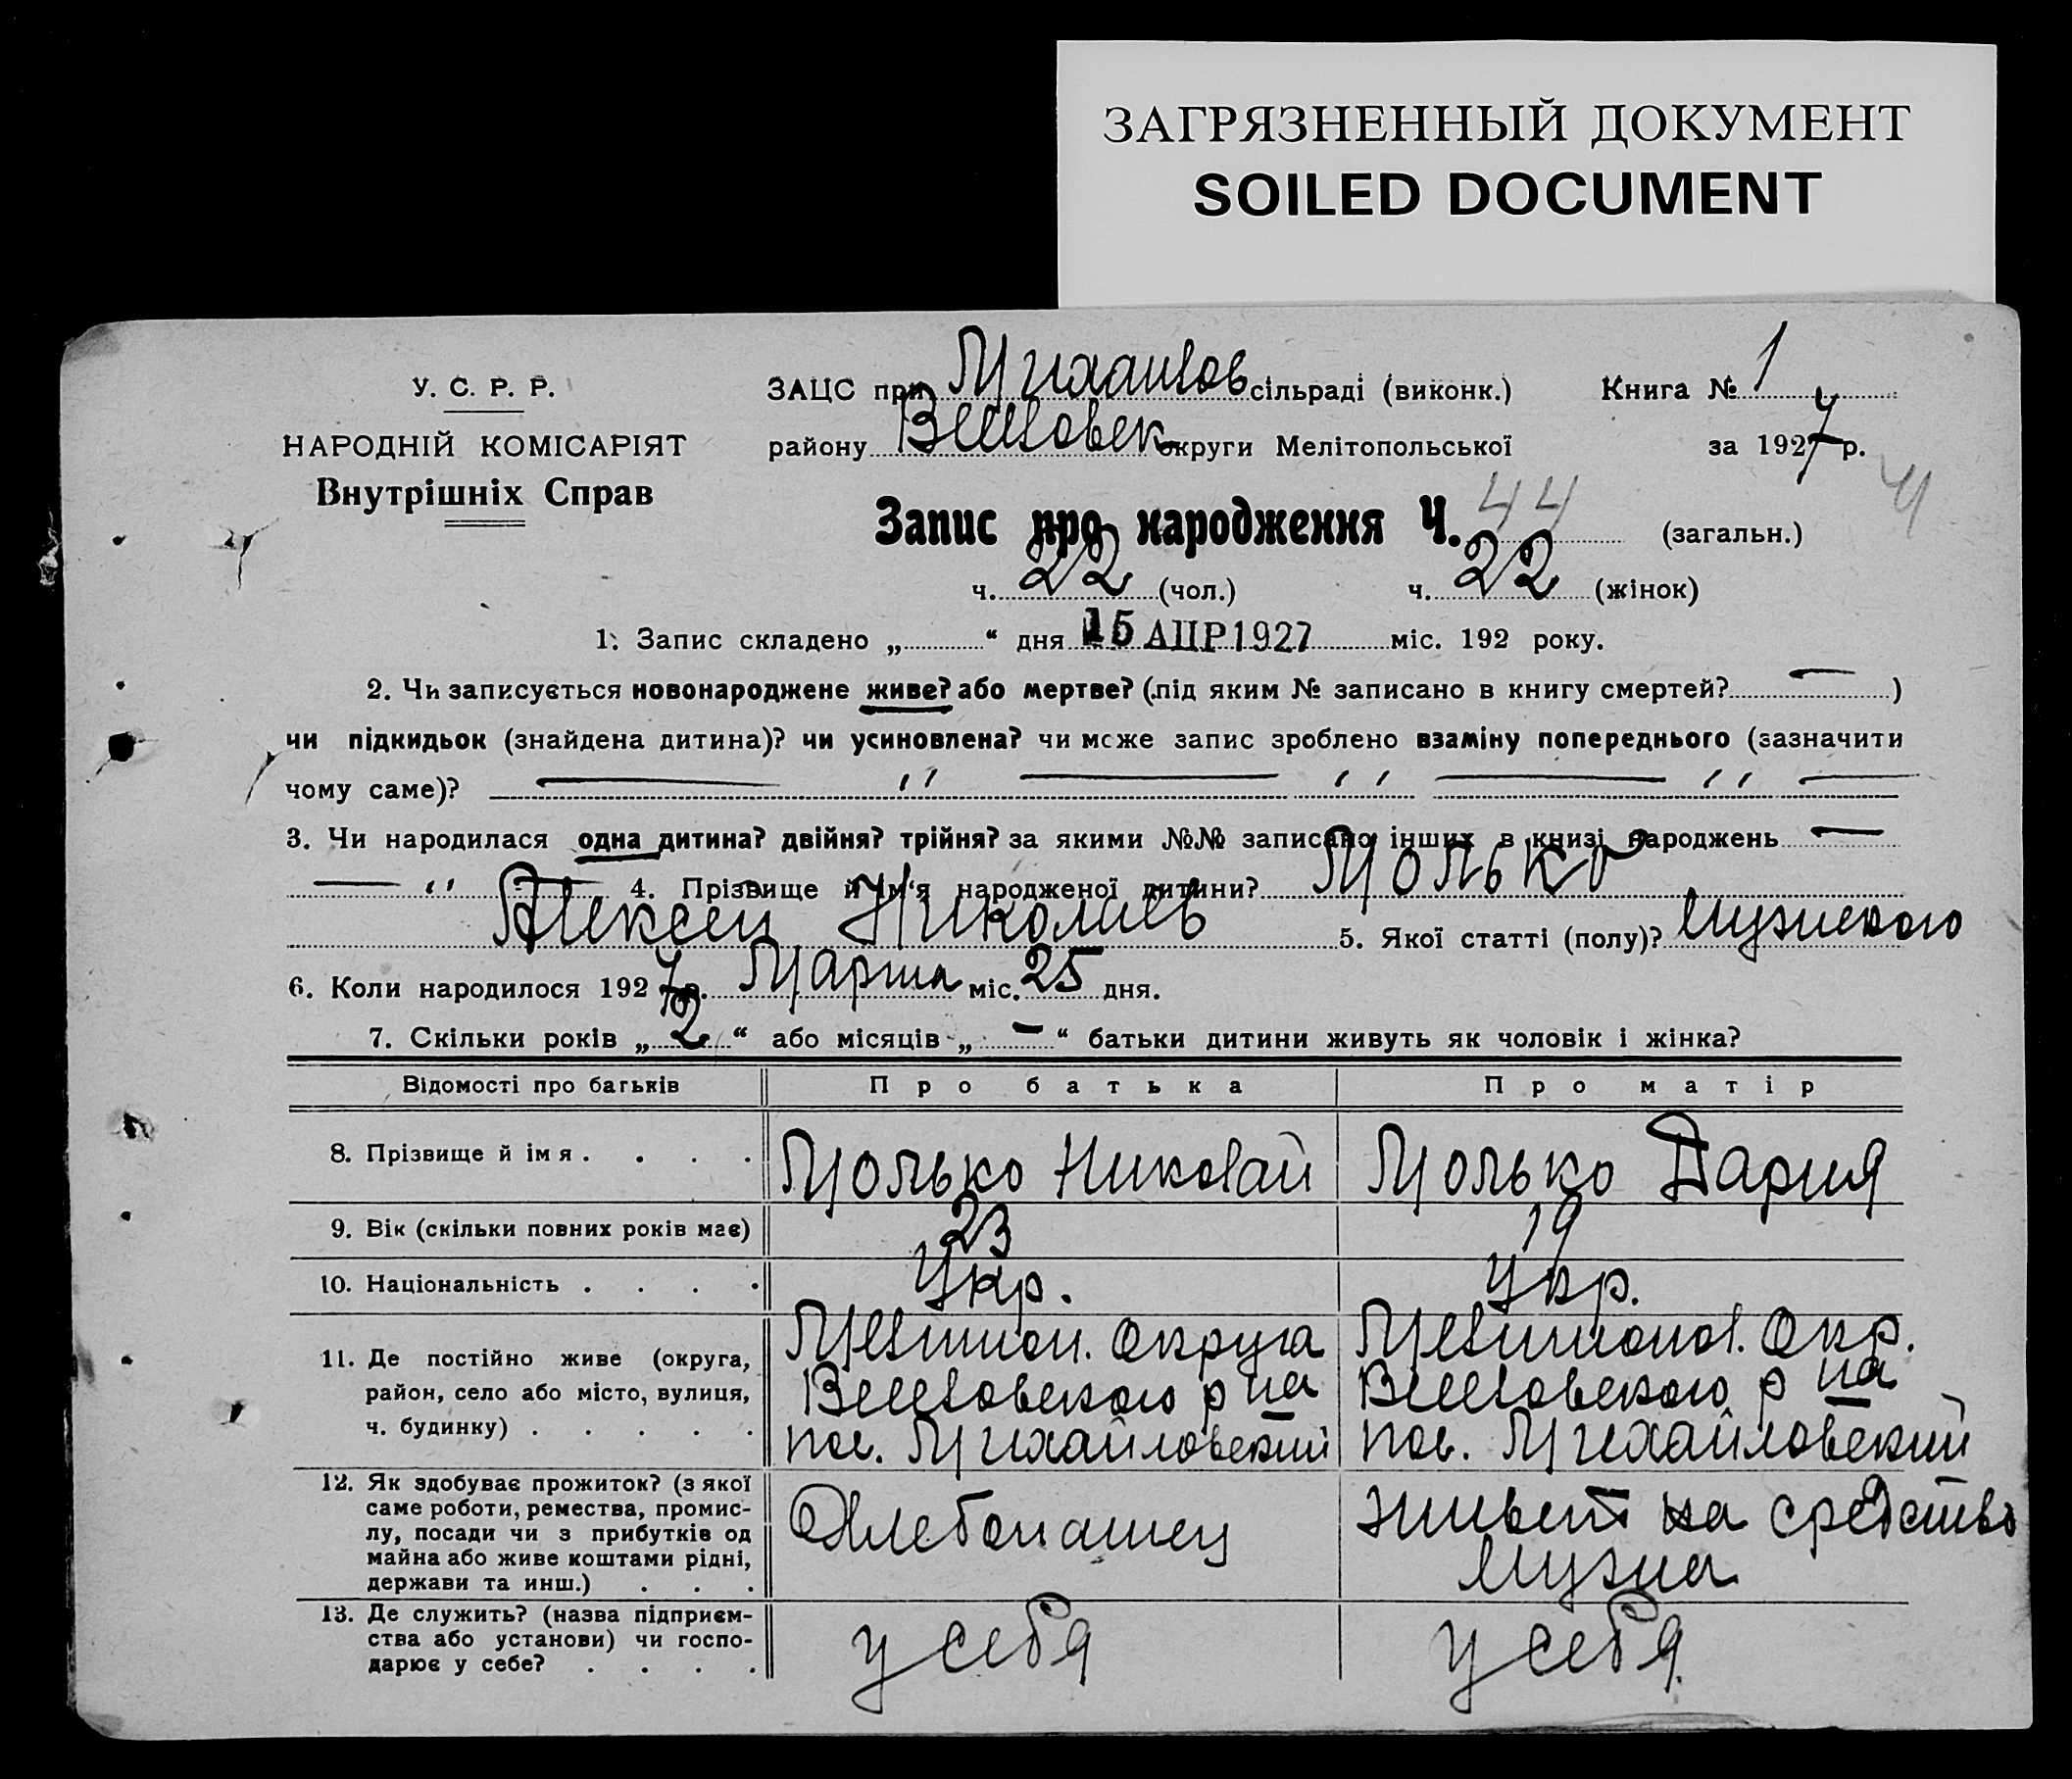 ЗАГРЯЗНЕННЫЙ ДОКУМЕНТ
SOILED DOCUMENT
У. С. Р. Р.
НАРОДНІЙ КОМІСАРІЯТ
Внутрішніх Справ
ЗАЦС при Михайлов сільраді (виконк.)
району Веселовск округи Мелітопольської
Книга № 1
за 1927 р.
4
Запис про народження Ч. 44 (загальн.)
ч. 22 (чол.) ч. 22 (жінок)
1. Запис складено „ “ дня 15 АПР 1927 міс. 192 року.
2. Чи записується новонароджене живе? або мертве? (під яким № записано в книгу смертей? — )
чи підкидьок (знайдена дитина)? чи усиновлена? чи може запис зроблено взаміну попереднього (зазначити
чому саме)? — " — " — " —
3. Чи народилася одна дитина? двійня? трійня? за якими №№ записано інших в книзі народжень —
— " — 4. Прізвище й ім‘я народженої дитини? Молько
Алексей Николаев 5. Якої статті (полу)? мужского
6. Коли народилося 1927 р. Марта міс. 25 дня.
7. Скільки років „ 2 “ або місяців „ — “ батьки дитини живуть як чоловік і жінка?
Відомості про батьків Про батька Про матір
8. Прізвище й імя . . . . Молько Николай Молько Дария
9. Вік (скільки повних років має) 23 19
10. Національність . . . . Укр. Укр.
11. Де постійно живе (округа,
район, село або місто, вулиця,
ч. будинку) . . . . .
Мелитоп. Округа
Веселовского р на
пос. Михайловский
Мелитопол. Окр.
Веселовского р на
пос. Михайловский
12. Як здобуває прожиток? (з якої
саме роботи, ремества, промис-
лу, посади чи з прибутків од
майна або живе коштами рідні,
держави та инш.) . . .
Хлебопашец
живет на средства
мужа
13. Де служить? (назва підприєм-
ства або установи) чи госпо-
дарює у себе? . . . .
у себя
у себя